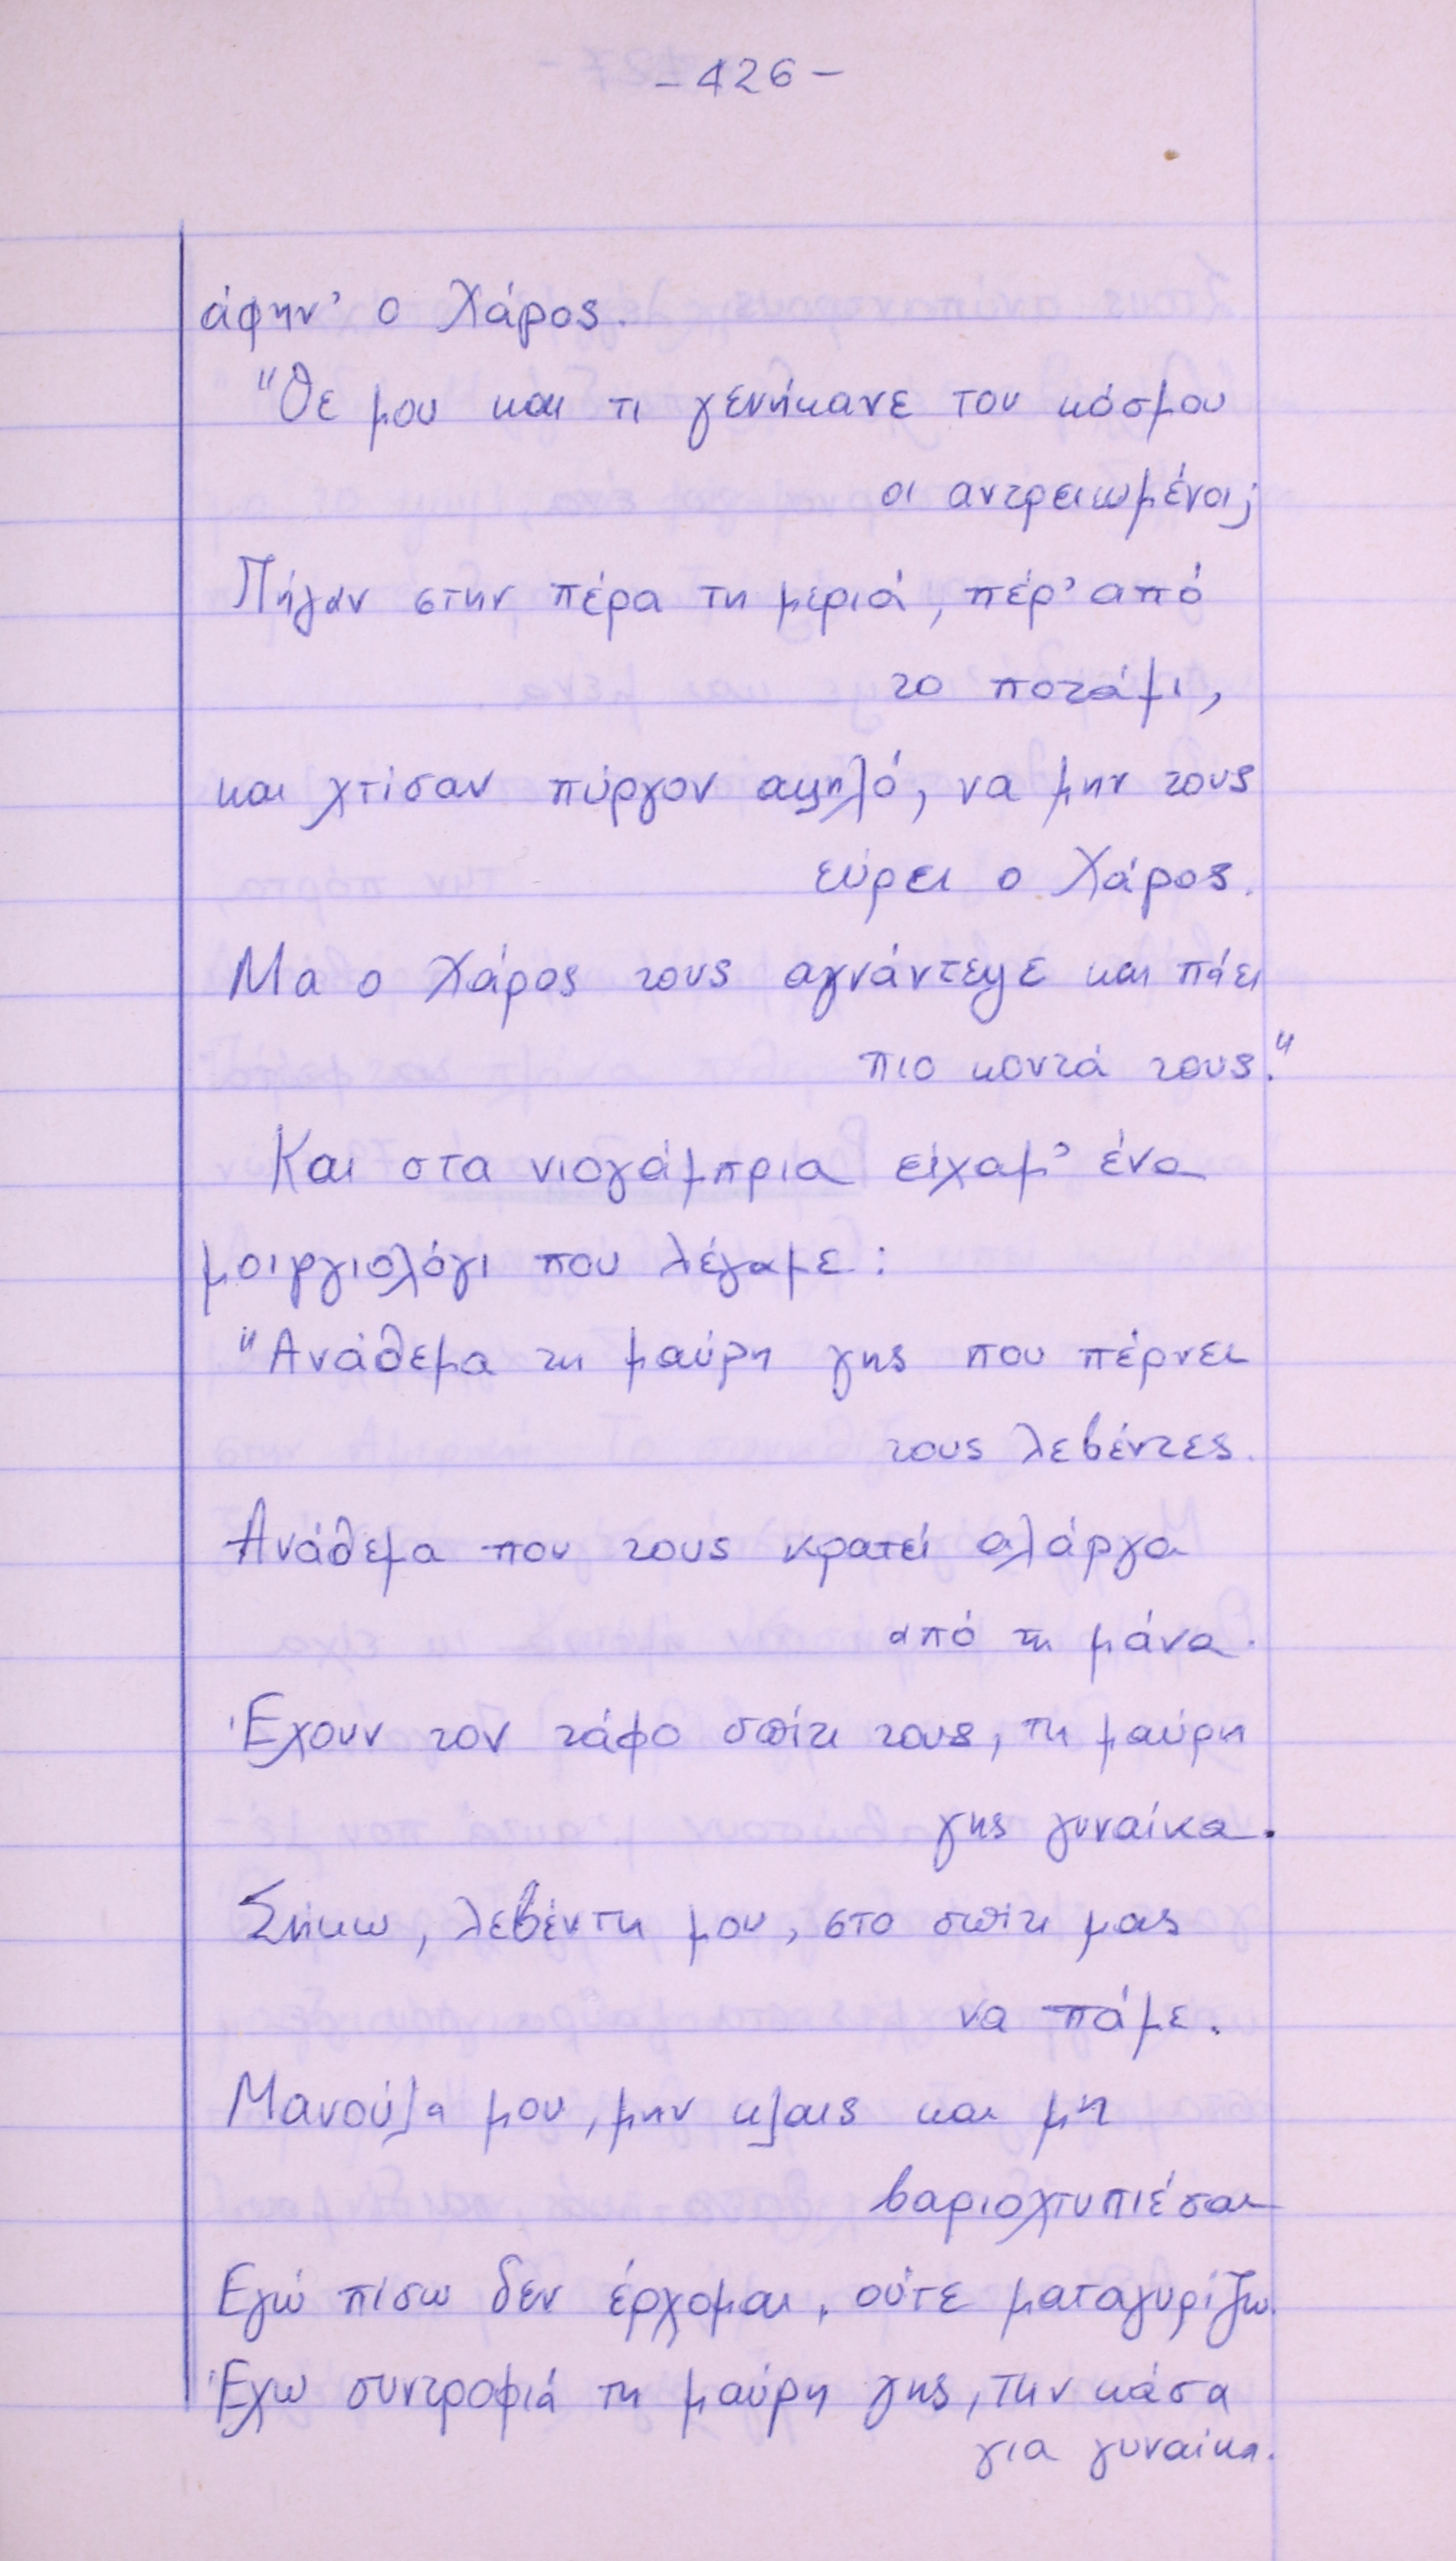 - 426 -
άφην' ο Χάρος.
"Θε μου και τι γενήκανε του κόσμου
οι αντρειωμένοι;
Πήγαν στην πέρα τη μεριά, πέρ' από
το ποτάμι,
και χτίσαν πύργον αψηλό, να μην τους
εύρει ο Χάρος.
Μα ο Χάρος τους αγνάντεψε και πάει
πιο κοντά τους."
Και στα νιογάμπρια είχαμ' ένα
μοιργιολόγι που λέγαμε:
"Ανάθεμα τη μαύρη γης που πέρνει
τους λεβέντες.
Ανάθεμα που τους κρατεί αλάργα
από τη μάνα.
Έχουν τον τάφο σπίτι τους, τη μαύρη
γης γυναίκα.
Σήκω, λεβέντη μου, στο σπίτι μας
να πάμε.
Μανούλα μου, μην κλαις και μη
βαριοχτυπιέσαι
Εγώ πίσω δεν έρχομαι, ούτε ματαγυρίζω.
Έχω συντροφιά τη μαύρη γης, την κάσα
για γυναίκα.